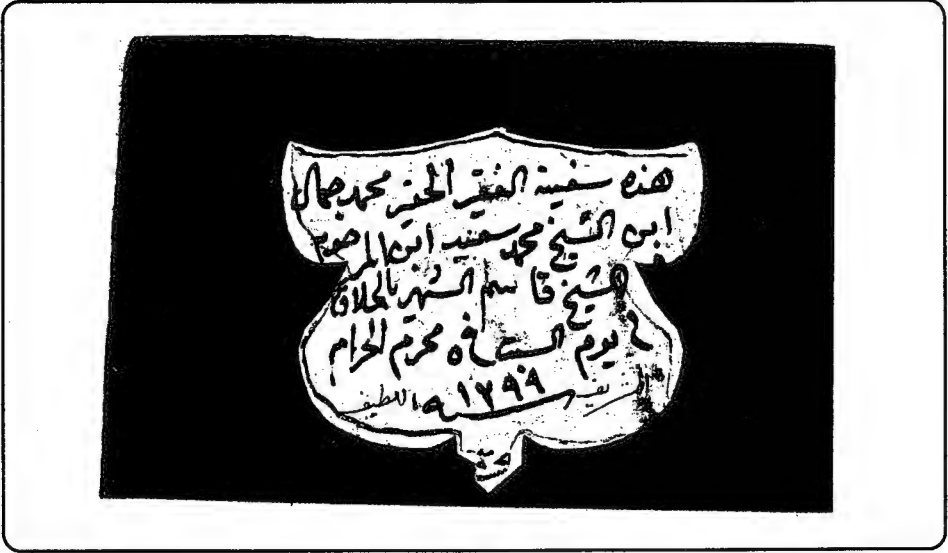 هذه سفينة الفقير الحقير محمد جمال
ابن الشيخ محمد سعيد ابن المرحوم
الشيخ قاسم الشهير بالحلاق
يوم السبت في ٥ محرم الحرام
سنه ١٢٩٩